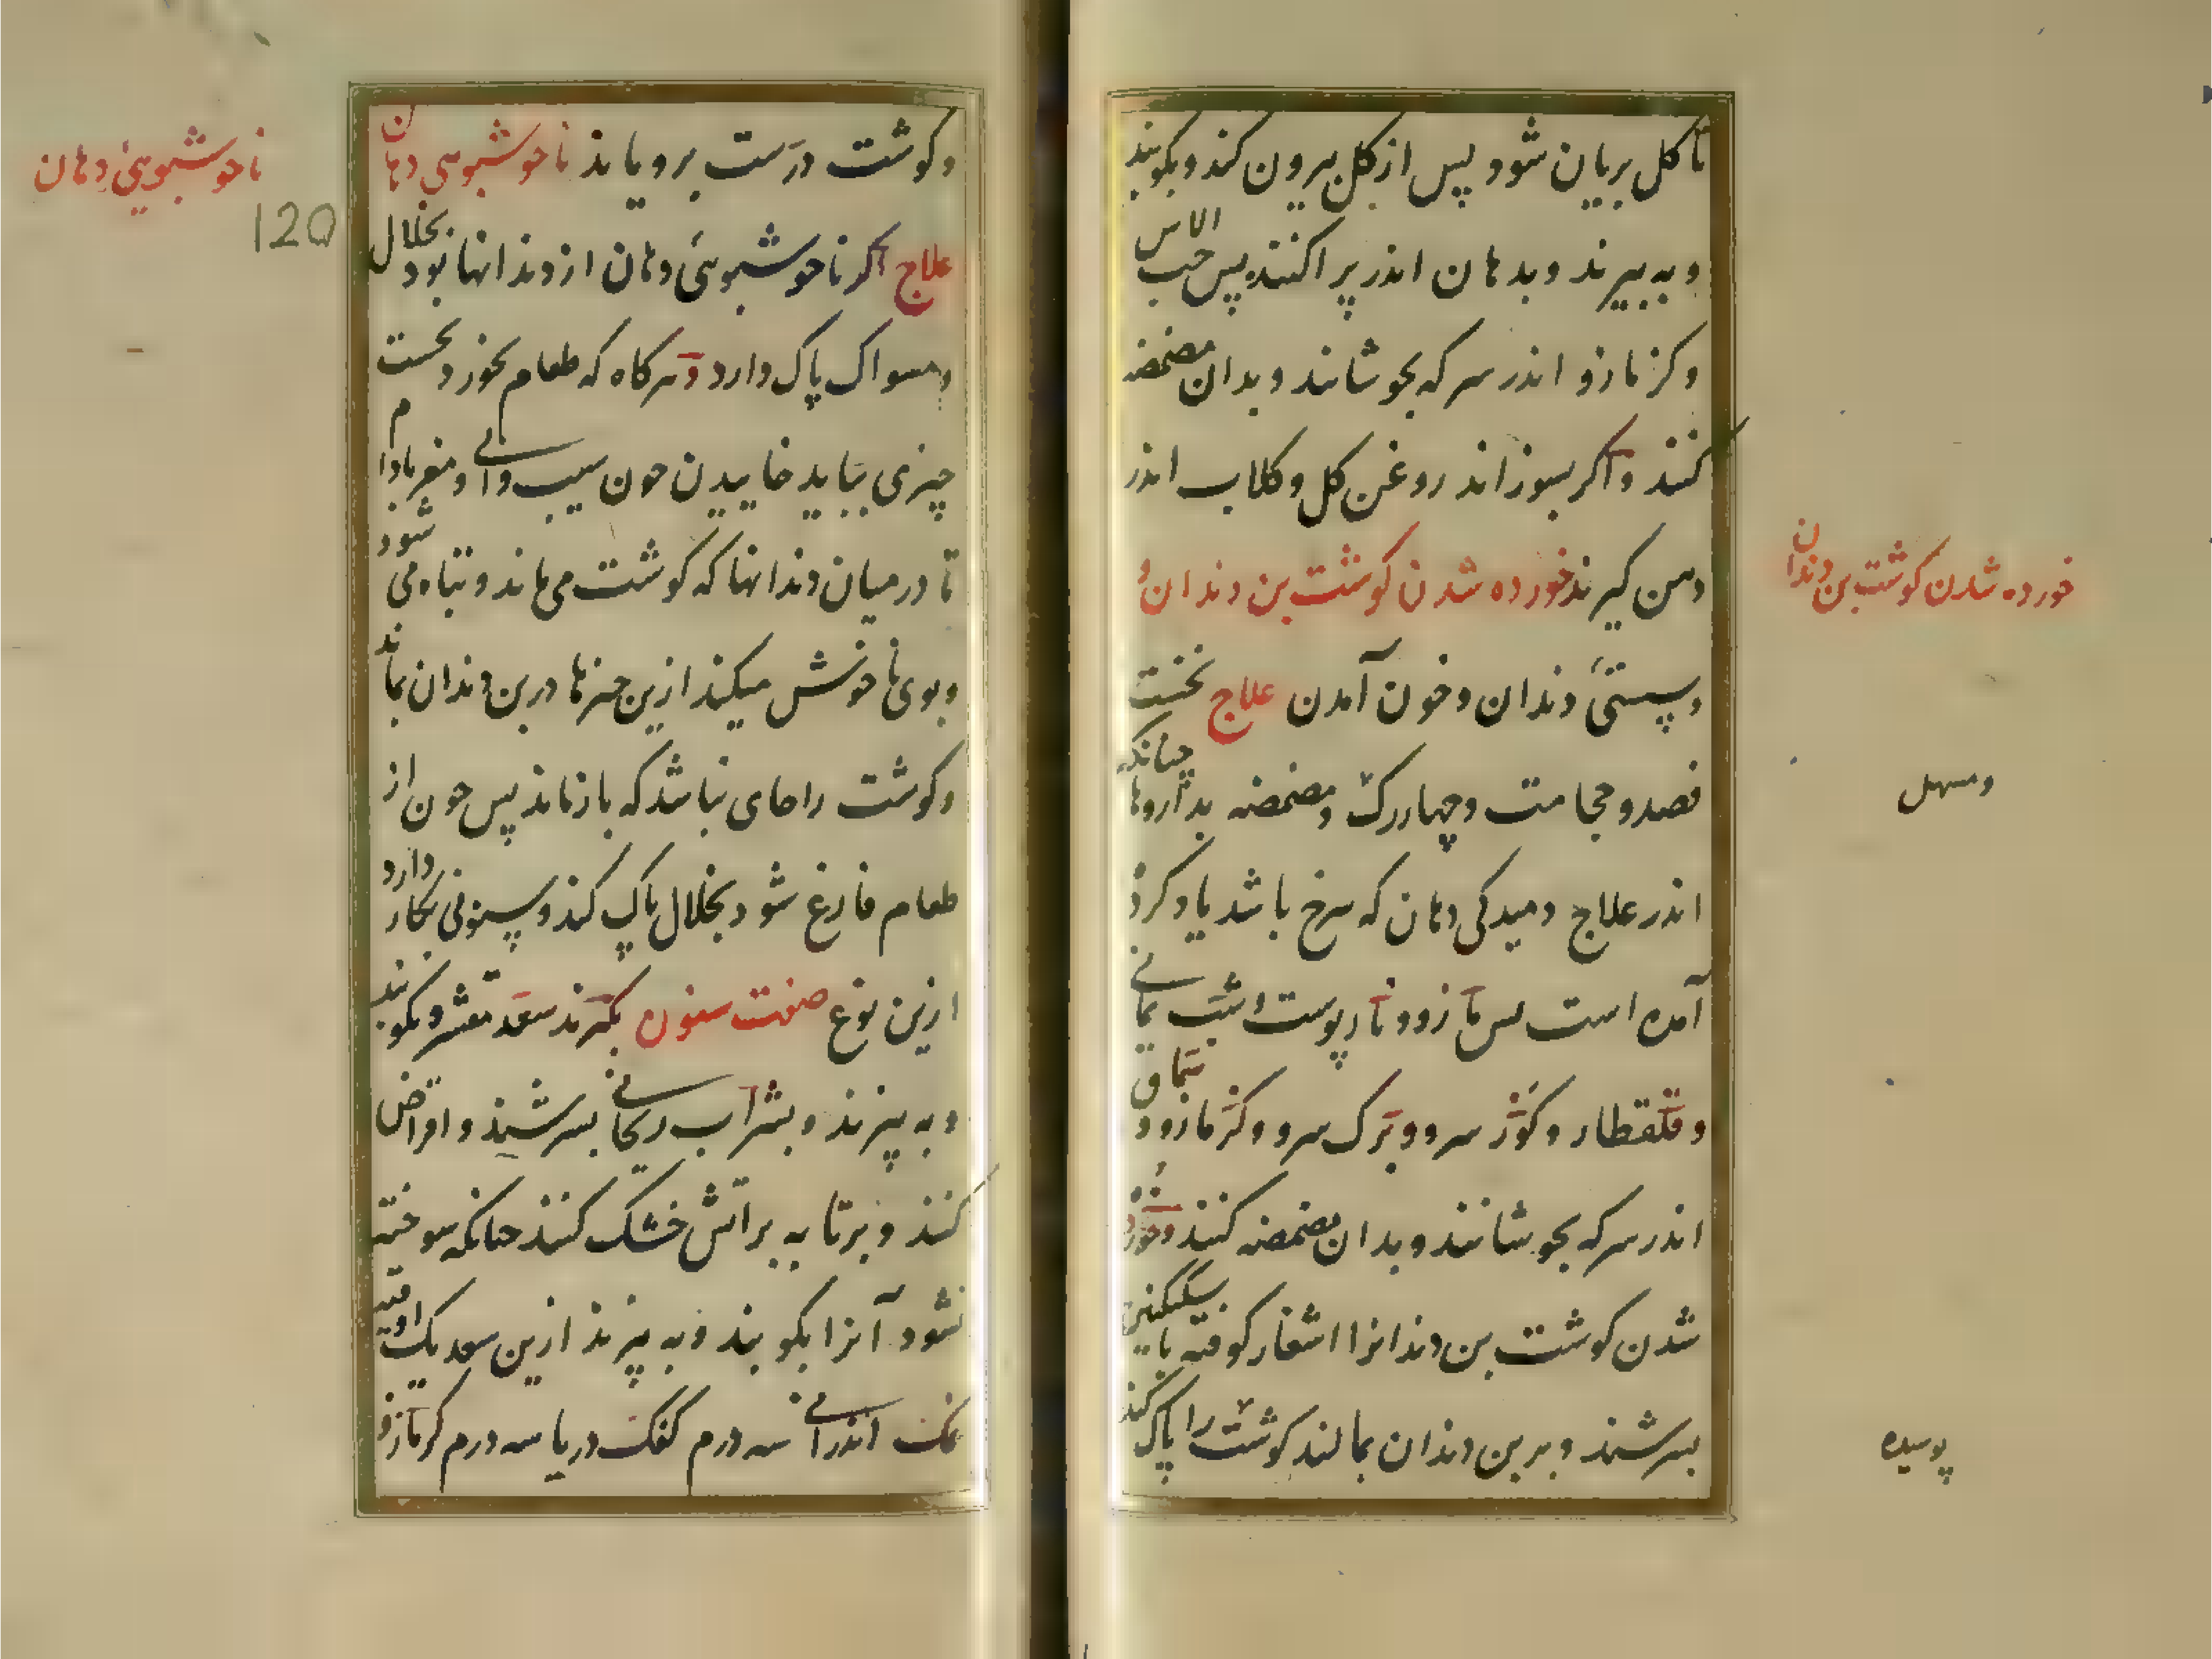 تا کل بریان شود پس از کل بیرون کند و بکوبند
و به بیزند و بدهان اندر پراکنند پس حب الاس
و کزمازو اندر سرکه بجوشانند و بدان مضمضه
کنند و اکر بسوزاند روغن کل و کلاب اندر
دهن کیرند خورده شدن کوشت بن دندان و
خورده شدن کوشت بن دندان
و سستئ دندان و خون آمدن علاج نخست
فصد و حجامت و چهاررک و مضمضه بداروها چنانکه
ومسهل
اندر علاج دمیدکی دهان که سرخ باشد یاد کرد
آمده است پس مازو و نارپوست و شب یمانی
و قلقطار و کوز سرو و برک سرو و کزمازو و سماق
اندر سرکه بجوشانند و بدان مضمضه کنند و خورده
شدن کوشت بن دندانرا اشغار کوفته با سکنکبین
بسرشند و بر بن دندان بمالند کوشت را پاک کند
پوسیده
و کوشت درست برویاند ناخوشبویی دهان
ناخوشبویئ دهان
120
علاج اکر ناخوشبوئی دهان از دندانها بود بخلال
و مسواک پاک دارد و هرکاه که طعام بخورد نخست
چیزی بباید خاییدن چون سیب و آبی و مغز بادام
تا در میان دندانها که کوشت می ماند و تباه می شود
و بوی ناخوش میکند ازین چیزها در بن دندان بماند
و کوشت را جای نباشد که بازماند پس چون از
طعام فارغ شود بخلال پاک کند و سنونی بکار دارد
ازین نوع صفت سنون بکیرند سعد مقشر و بکوبند
و به بیزند و بشراب ریحانی بسرشند و اقراص
کنند و برتابه بر اتش خشک کنند چنانکه سوخته
نشود آنرا بکوبند و به بیزند ازین سعد یک اوقیه
نمک اندرانی سه درم کفک دریا سه درم کزمازو